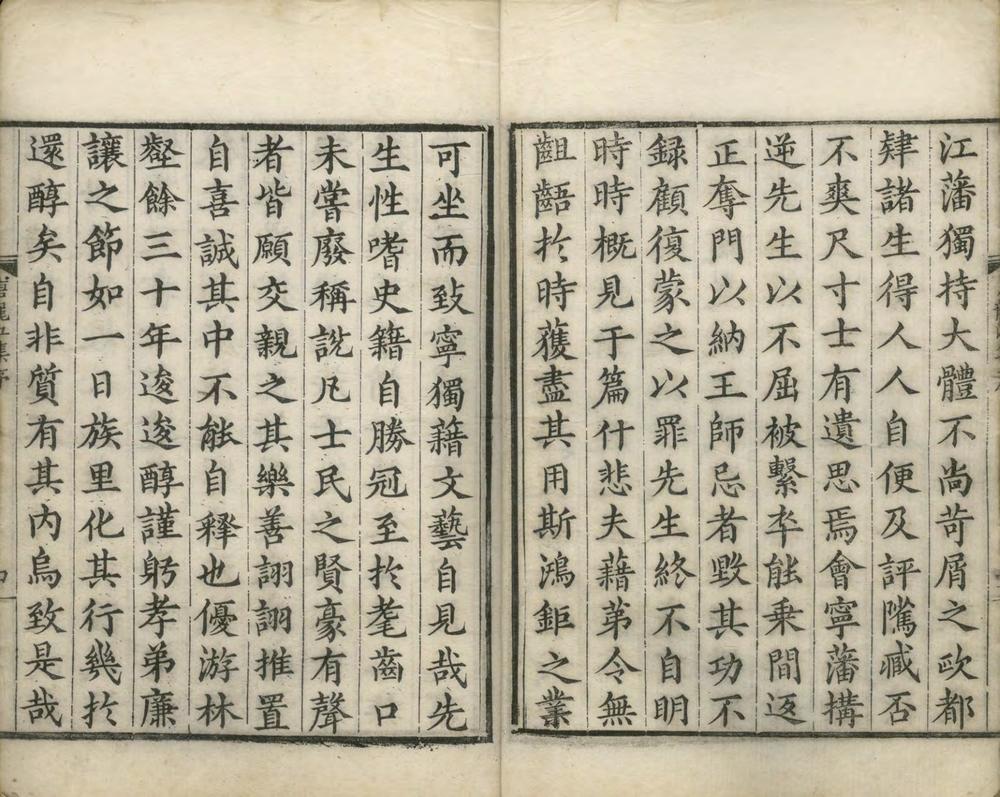 江藩獨持大體不尚苛屑之歐都
肄諸生得人人自便及評隲臧否
不爽尺寸士有遺思焉會寧藩搆
逆先生以不屈被繫卒能乗間返
正奪門以納王師忌者毀其功不
録顧復蒙之以罪先生終不自明
時時概見于篇什悲夫藉第令無
齟齬扵時獲盡其用斯鴻鉅之業
可坐而致寧獨藉文藝自見哉先
生性嗜史籍自勝冠至扵耄齒口
未嘗廢稱說凡士民之賢豪有聲
者皆願交親之其樂善詡詡推置
自喜誠其中不能自釋也優游林
壑餘三十年逡逡醇謹躬孝弟廉
讓之節如一日族里化其行幾扵
還醇矣自非質有其内烏致是哉